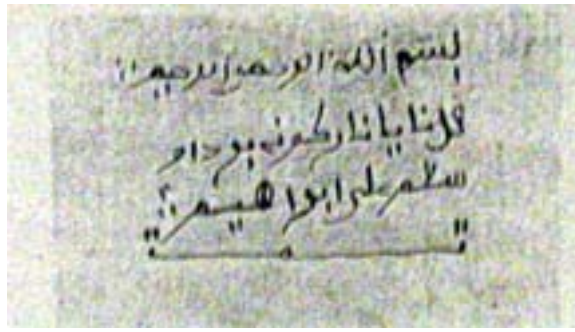 بسم الله الرحمن الرحيم
قلنا يا نار كوني بردا و
سلام على ابراهيم